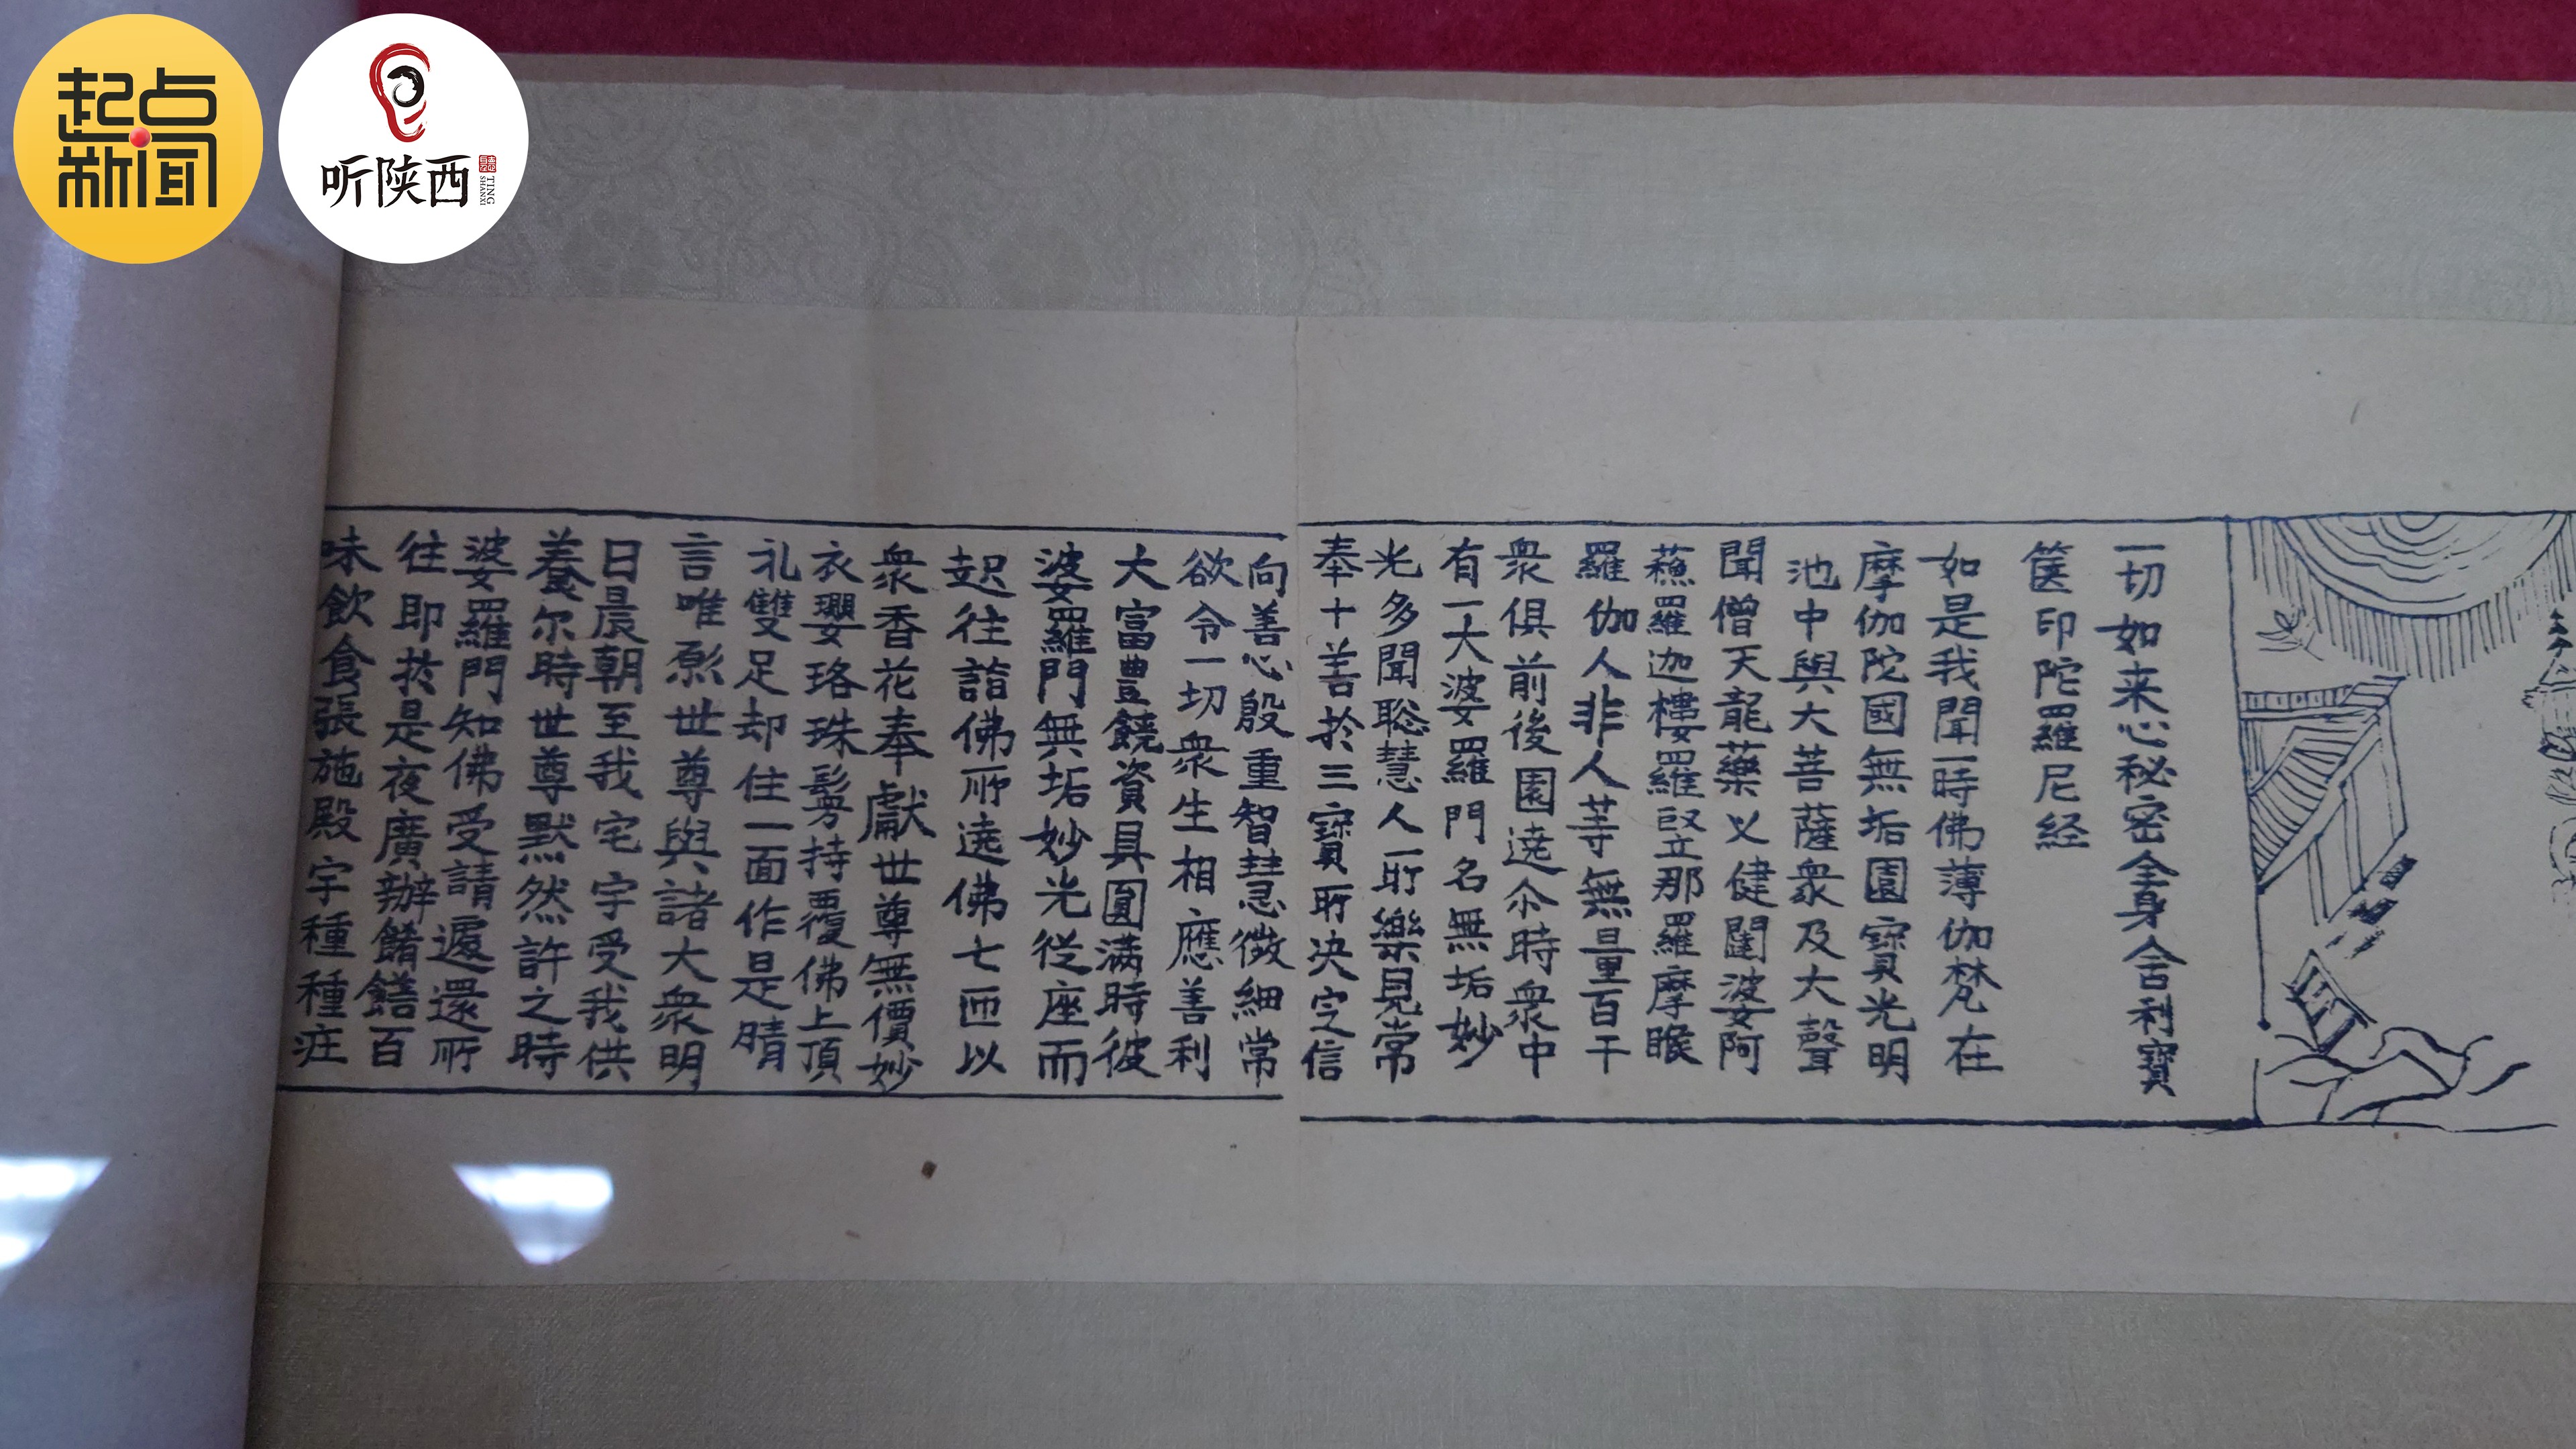 起点
新闻
听陕西
TING
SHANXI
一切如来心秘密全身舍利寶
箧印陀羅尼経
如是我聞一時佛薄伽梵在
摩伽陀國無垢園寶光明
池中與大菩薩衆及大聲
聞僧天龍藥乂健闥婆阿
蘓羅迦樓羅緊那羅摩睺
羅伽人非人等無量百千
衆俱前後園遶尒時衆中
有一大婆羅門名無垢妙
光多聞聡慧人所樂見常
奉十善扵三寶所决定信
向善心殷重智慧微細常
欲令一切衆生相應善利
大富豊饒資具圓满時彼
婆羅門無垢妙光従座而
起往詣佛所遶佛七匝以
衆香花奉獻世尊無價妙
衣瓔珞珠鬘持覆佛上頂
礼雙足却住一面作是請
言唯愿世尊與諸大衆明
日晨朝至我宅宇受我供
養尔時世尊默然許之時
婆羅門知佛受請遽還所
往即扵是夜廣辦餚饍百
味飲食張施殿宇種種庄